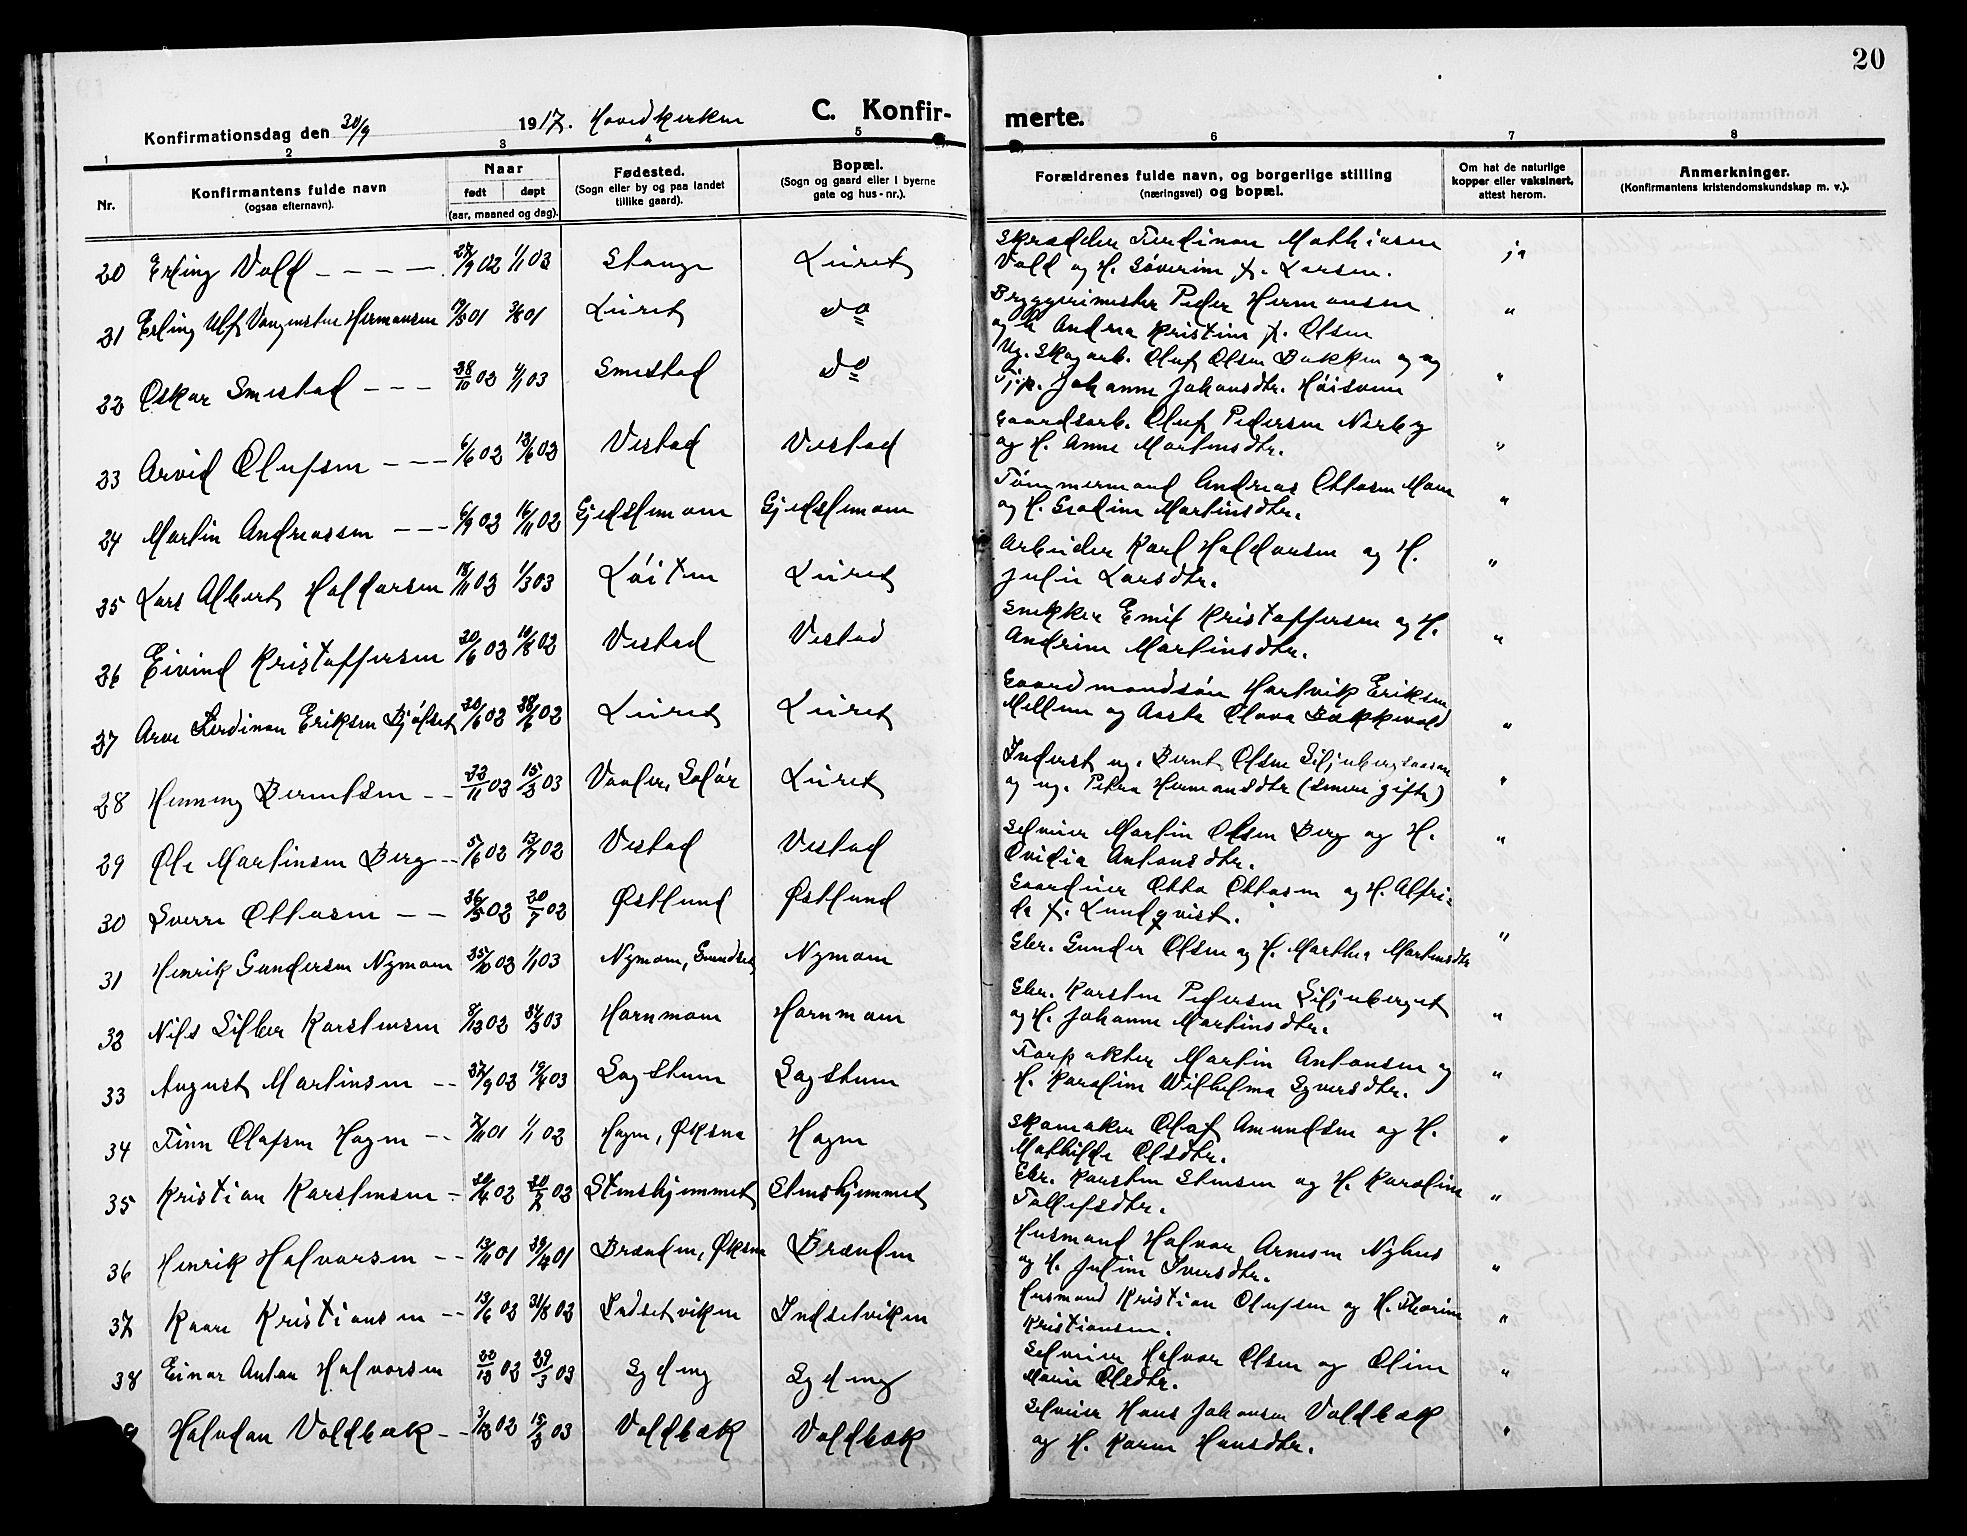 20
C. Konfirmerte.
Konfirmationsdag den 30/9 1917. Hovedkirken
1 2 3 4 5 6 7 8
Nr. Konfirmantens fulde navn (ogsaa efternavn). Naar født døpt (aar, maaned og dag). Fødested. (Sogn eller by og paa landet tillike gaard). Bopæl. (Sogn og gaard eller i byerne gate og hus-nr.). Forældrenes fulde navn, og borgerlige stilling (næringsvei) og bopæl. Om hat de naturlige kopper eller vaksinert, attest herom. Anmerkninger. (Konfirmantens kristendomskundskap m. v.).
20 Erling Vold 27/9 02 1/1 03 Stange Leiret Skrædder Ferdinan Mathiasen ja
Vold og H. Søverine f. Larsen.
21 Erling Ulf Vangensten Hermansen 19/5 01 3/8 01 Leiret do Bryggerimester Peder Hermansen "
og H. Andrea Kristine f. Olsen
22 Oskar Smestad 28/10 02 1/1 03 Smestad do Ug. Skogarb. Oluf Olsen Bakken og ug "
Tj.p. Johanne Johansdtr. Høisveen
23 Arvid Olufsen 6/6 02 13/6 02 Vestad Vestad Gaardsarb. Oluf Pedersen Nørby "
og H. Anne Martinsdtr.
24 Martin Andreassen 6/9 02 16/11 02 Gjedslemoen Gjedslemoen Tømmermand Andreas Ottosen Moen "
og H. Gradine Martinsdtr.
25 Lars Albert Haldorsen 18/11 02 1/3 03 Løiten Leiret Arbeider Karl Haldorsen og H. "
Julie Larsdtr.
26 Eivind Kristoffersen 20/6 02 10/8 02 Vestad Vestad Snekker Emil Kristoffersen og H. "
Andrine Martinsdtr.
27 Arve Ferdinan Eriksen Bjølset 20/6 02 28/6 02 Leiret Leiret Gaardmandsøn Hartvik Eriksen "
Mellem og Aasta Olava Bækkevold
28 Henning Berntsen 22/11 02 15/2 03 Vaaler, Solør Leiret Inderst ug. Bernt Olsen Siljubergsaasen "
og ug. Petra Hermansdtr (senere gifte)
29 Ole Martinsen Berg 5/6 02 13/7 02 Vestad Vestad Selveier Martin Olsen Berg og H. "
Ovidia Antonsdtr.
30 Sverre Ottosen 26/5 02 20/7 02 Østlund Østlund Gaardeier Otto Ottosen og H. Alfri-
da f. Lundqvist. "
31 Henrik Gundersen Nymoen 25/10 02 1/1 03 Nymoen, Grundset Nymoen Gbr. Gunder Olsen og H. Marthea Martinsdtr
32 Nils Silber Karstensen 8/12 02 24/3 03 Hornmoen Hornmoen Gbr. Karsten Pedersen Siljuberget "
og H. Johanne Martinsdtr.
33 August Martinsen 27/9 02 19/4 03 Sagstuen Sagstuen Forpakter Martin Antonsen og "
H. Karoline Wilhelma Syversdtr.
34 Finn Olafsen Hagen 7/11 01 1/1 02 Hagen, Øksna Hagen Skomaker Olaf Amundsen og H. "
Mathilde Olsdtr.
35 Kristian Karstensen 20/4 02 20/7 02 Stenshjemmet Stenshjemmet Gbr. Karsten Stensen og H. Karoline "
Tollefsdtr.
36 Henrik Halvorsen Brænden, Øksna Brænden Husmand Halvor Arnesen Nyhus "
og H. Juline Iversdtr.
37 Kaare Kristiansen 13/6 02 31/8 02 Indsetviken Indsetviken Husmand Kristian Olufsen og H. Thorine "
Kristiansen.
38 Einar Anton Halvorsen 22/12 02 29/3 03 Gyding Gyding Selveier Halvor Olsen og Oline "
Marie Olsdtr.
Halvdan Voldbæk 3/12 02 15/2 03 Voldbæk Voldbæk Selveier Hans Johansen Voldbæk "
og H. Karen Hansdtr.